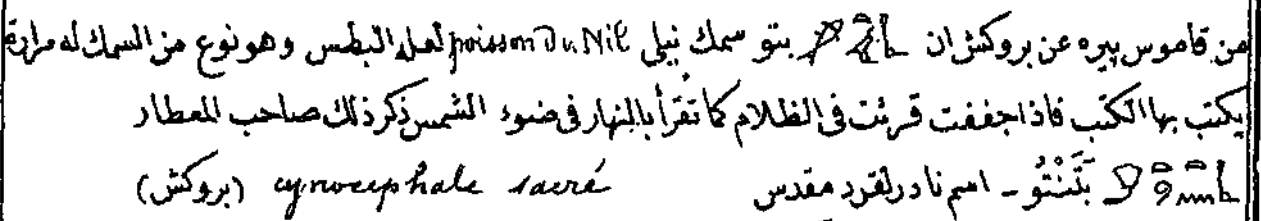 من قاموس بيره عن بروكش ان بتو سمك نيلى poisson du Nil لعله البطس وهو نوع من السمك له مرارة
يكتب بها الكتب فاذا جففت قرئت فى الظلام كما تُقرأ بالنهار فى ضوء الشمس ذكر ذلك صاحب المعطار
بَتَنْتُو - اسم نادر لقرد مقدس cynocéphale sacré (بروكش)